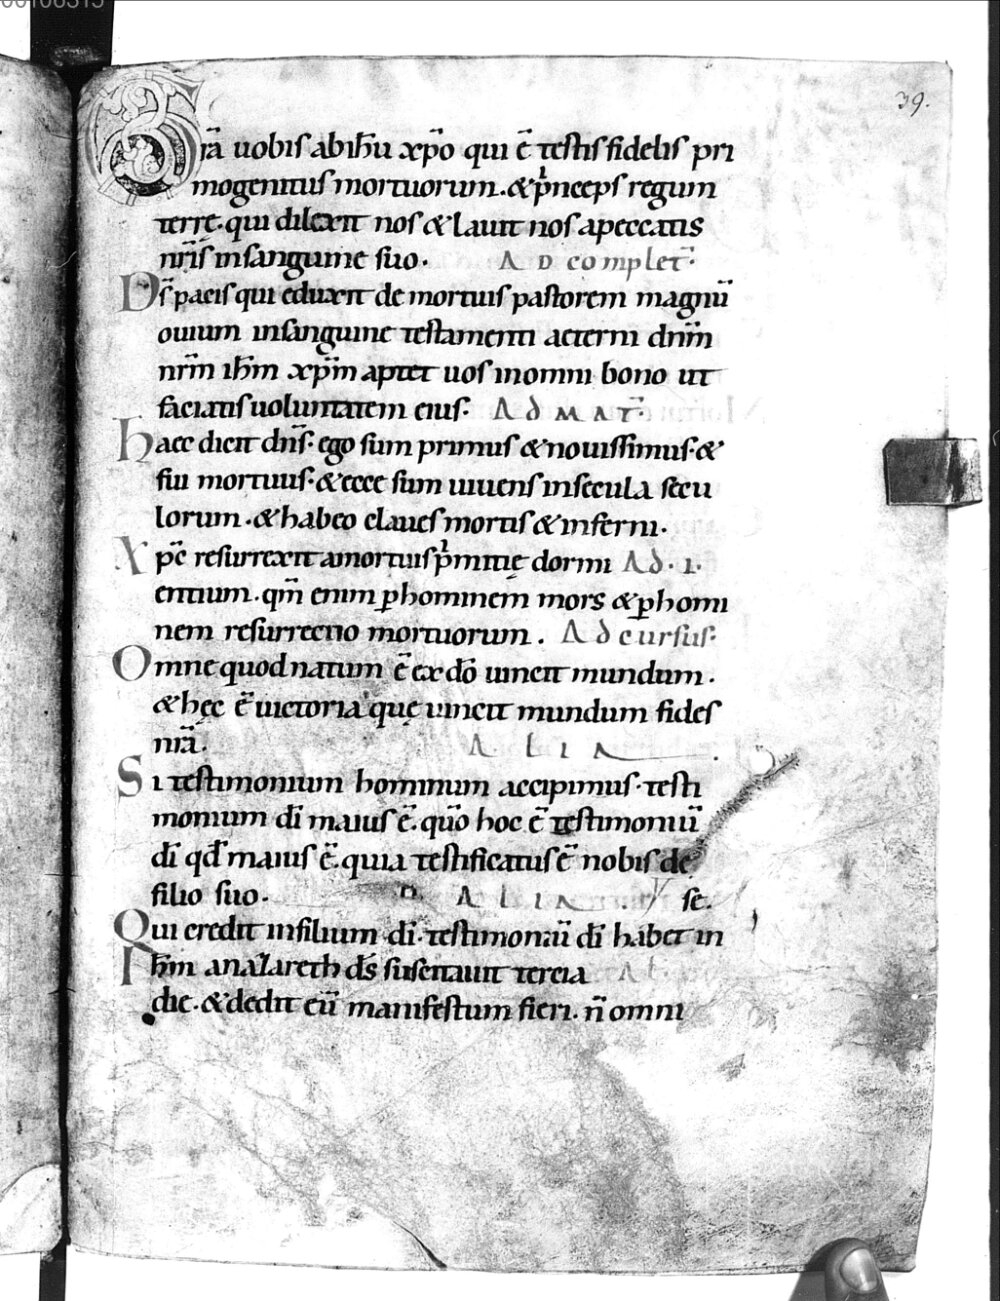 00108315
39.
Gr̄a uobis ab ih̄u xp̄o qui ē testis fidelis pri
mogenitus mortuorum. & p̄nceps regum
terrę. qui dilexit nos & lauit nos a peccatis
nr̄is in sanguine suo. AD complet̄.
D̄s pacis qui eduxit de mortuis pastorem magnū
ouium in sanguine testamenti aeterni dn̄m
nr̄m ih̄m xp̄m aptet uos in omni bono ut
faciatis uoluntatem eius. AD MAT̄.
Haec dicit dn̄s. ego sum primus & nouissimus. &
fui mortuus. & ecce sum uiuens in secula secu
lorum. & habeo claues mortis & inferni.
Xp̄c resurrexit a mortuis p̄mitię dormi Ad. i.
entium. qm̄ enim ꝑ hominem mors & ꝑ homi
nem resurrectio mortuorum. Ad cursus.
Omne quod natum ē ex dō uincit mundum.
& hęc ē uictoria quę uincit mundum fides
nr̄a. ALIA.
Si testimonium hominum accipimus. testi
monium dī maius ē. quō hoc ē testimoniū
dī qd̄ maius ē. quia testificatus ē nobis de
filio suo. ALIA se.
Qui credit in filium dī. testimoniū dī habet in
Ih̄m a nazareth d̄s suscitauit tercia Al.
die. & dedit eū manifestum fieri. n̄ omni